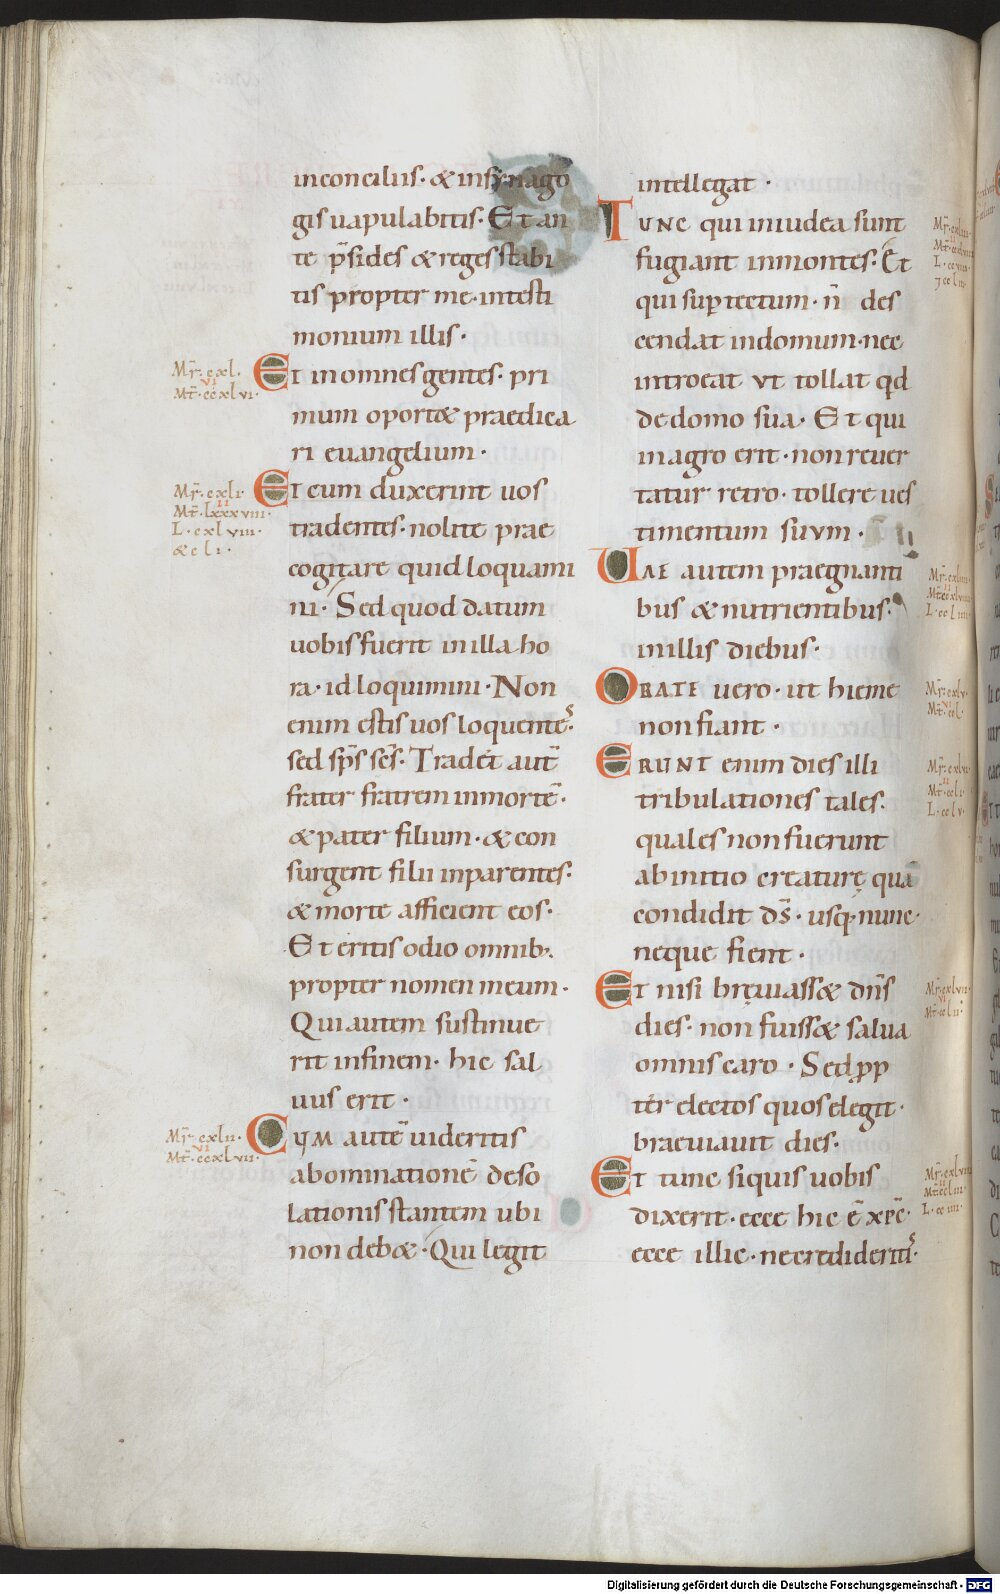 inconciliis· & insynago
gis uapulabitis· Et an
te p̄sides & reges stabi
tis propter me· intesti
monium illis·
Mr̄· cxl·
vi
Mt̄· ccxlvi·
Et inomnes gentes· pri
mum oport& praedica
ri euangelium·
Mr̄· cxli·
ii
Mt̄· lxxxviii·
L· cxlviii·
& cli·
Et cum duxerint uos
tradentes· nolite prae
cogitare quid loquami
ni· Sed quod datum
uobis fuerit inilla ho
ra· id loquimini· Non
enim estis uos loquentes·
sed sp̄s sc̄s· Tradet aut̄
frater fratrem inmortē·
& pater filium· & con
surgent filii inparentes·
& morte afficient eos·
Et eritis odio omnib·
propter nomen meum·
Qui autem sustinue
rit infinem· hic sal
uus erit·
Mr̄· cxlii·
vi
Mt̄· ccxlvii·
Cum autē uideritis
abominationē deso
lationis stantem ubi
non deb&· Qui legit
intellegat·
Tunc qui iniudea sunt
fugiant inmontes· Et
qui sup tectum· n̄ des
cendat indomum· nec
introeat ut tollat qd
de domo sua· Et qui
inagro erit· non reuer
tatur retro· tollere ues
timentum suum·
Uae autem praegnanti
bus & nutrientibus·
inillis diebus·
Orate uero· ut hieme
non fiant·
Erunt enim dies illi
tribulationes tales·
quales non fuerunt
abinitio creaturę qua
condidit d̄s· usq; nunc·
neque fient·
Et nisi bręuiass& dn̄s
dies· non fuiss& salua
omnis caro· Sed pp
ter electos quos elegit·
braeuiauit dies·
Et tunc siquis uobis
dixerit· ecce hic ē xp̄c·
ecce illic· necredideritis·
Digitalisierung gefördert durch die Deutsche Forschungsgemeinschaft - DFG